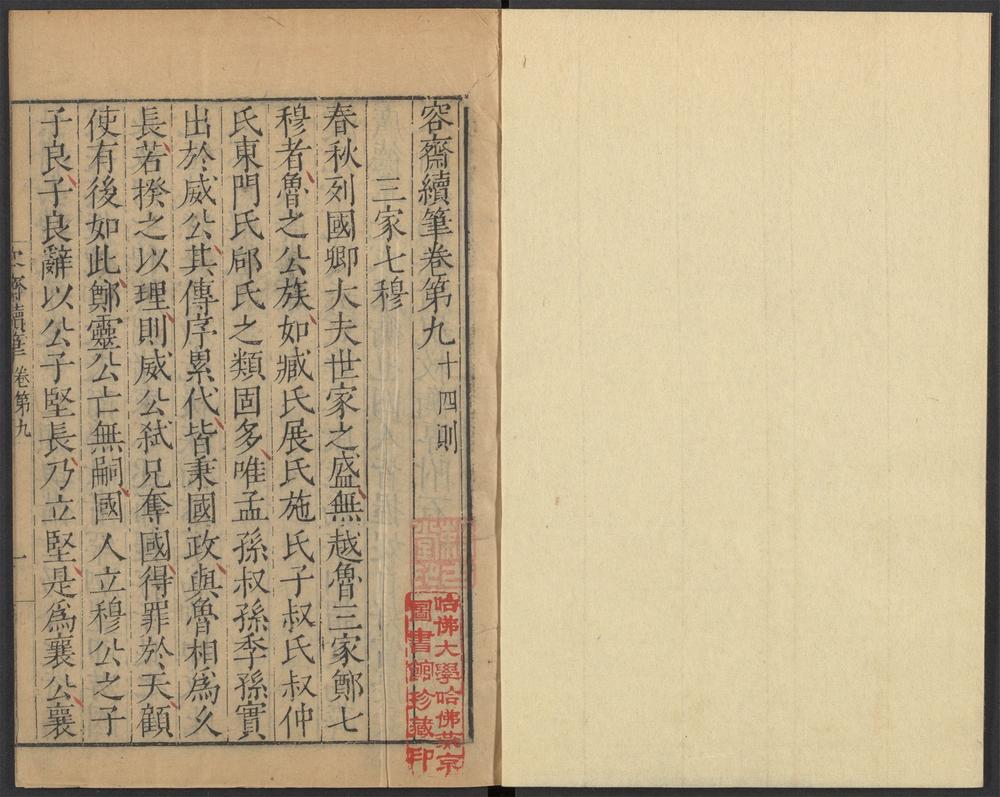 容齋續筆卷第九十四則
三家七穆
春秋列國卿大夫世家之盛無越魯三家鄭七
穆者魯之公族如臧氏展氏施氏子叔氏叔仲
氏東門氏郈氏之類固多唯孟孫叔孫季孫實
出於威公其傳序累代皆秉國政與魯相爲久
長若揆之以理則威公弑兄奪國得罪於天顧
使有後如此鄭靈公亡無嗣國人立穆公之子
子良子良辭以公子堅長乃立堅是爲襄公襄
齋續筆卷第九 一
哈佛大學哈佛燕京
圖書館珍藏印